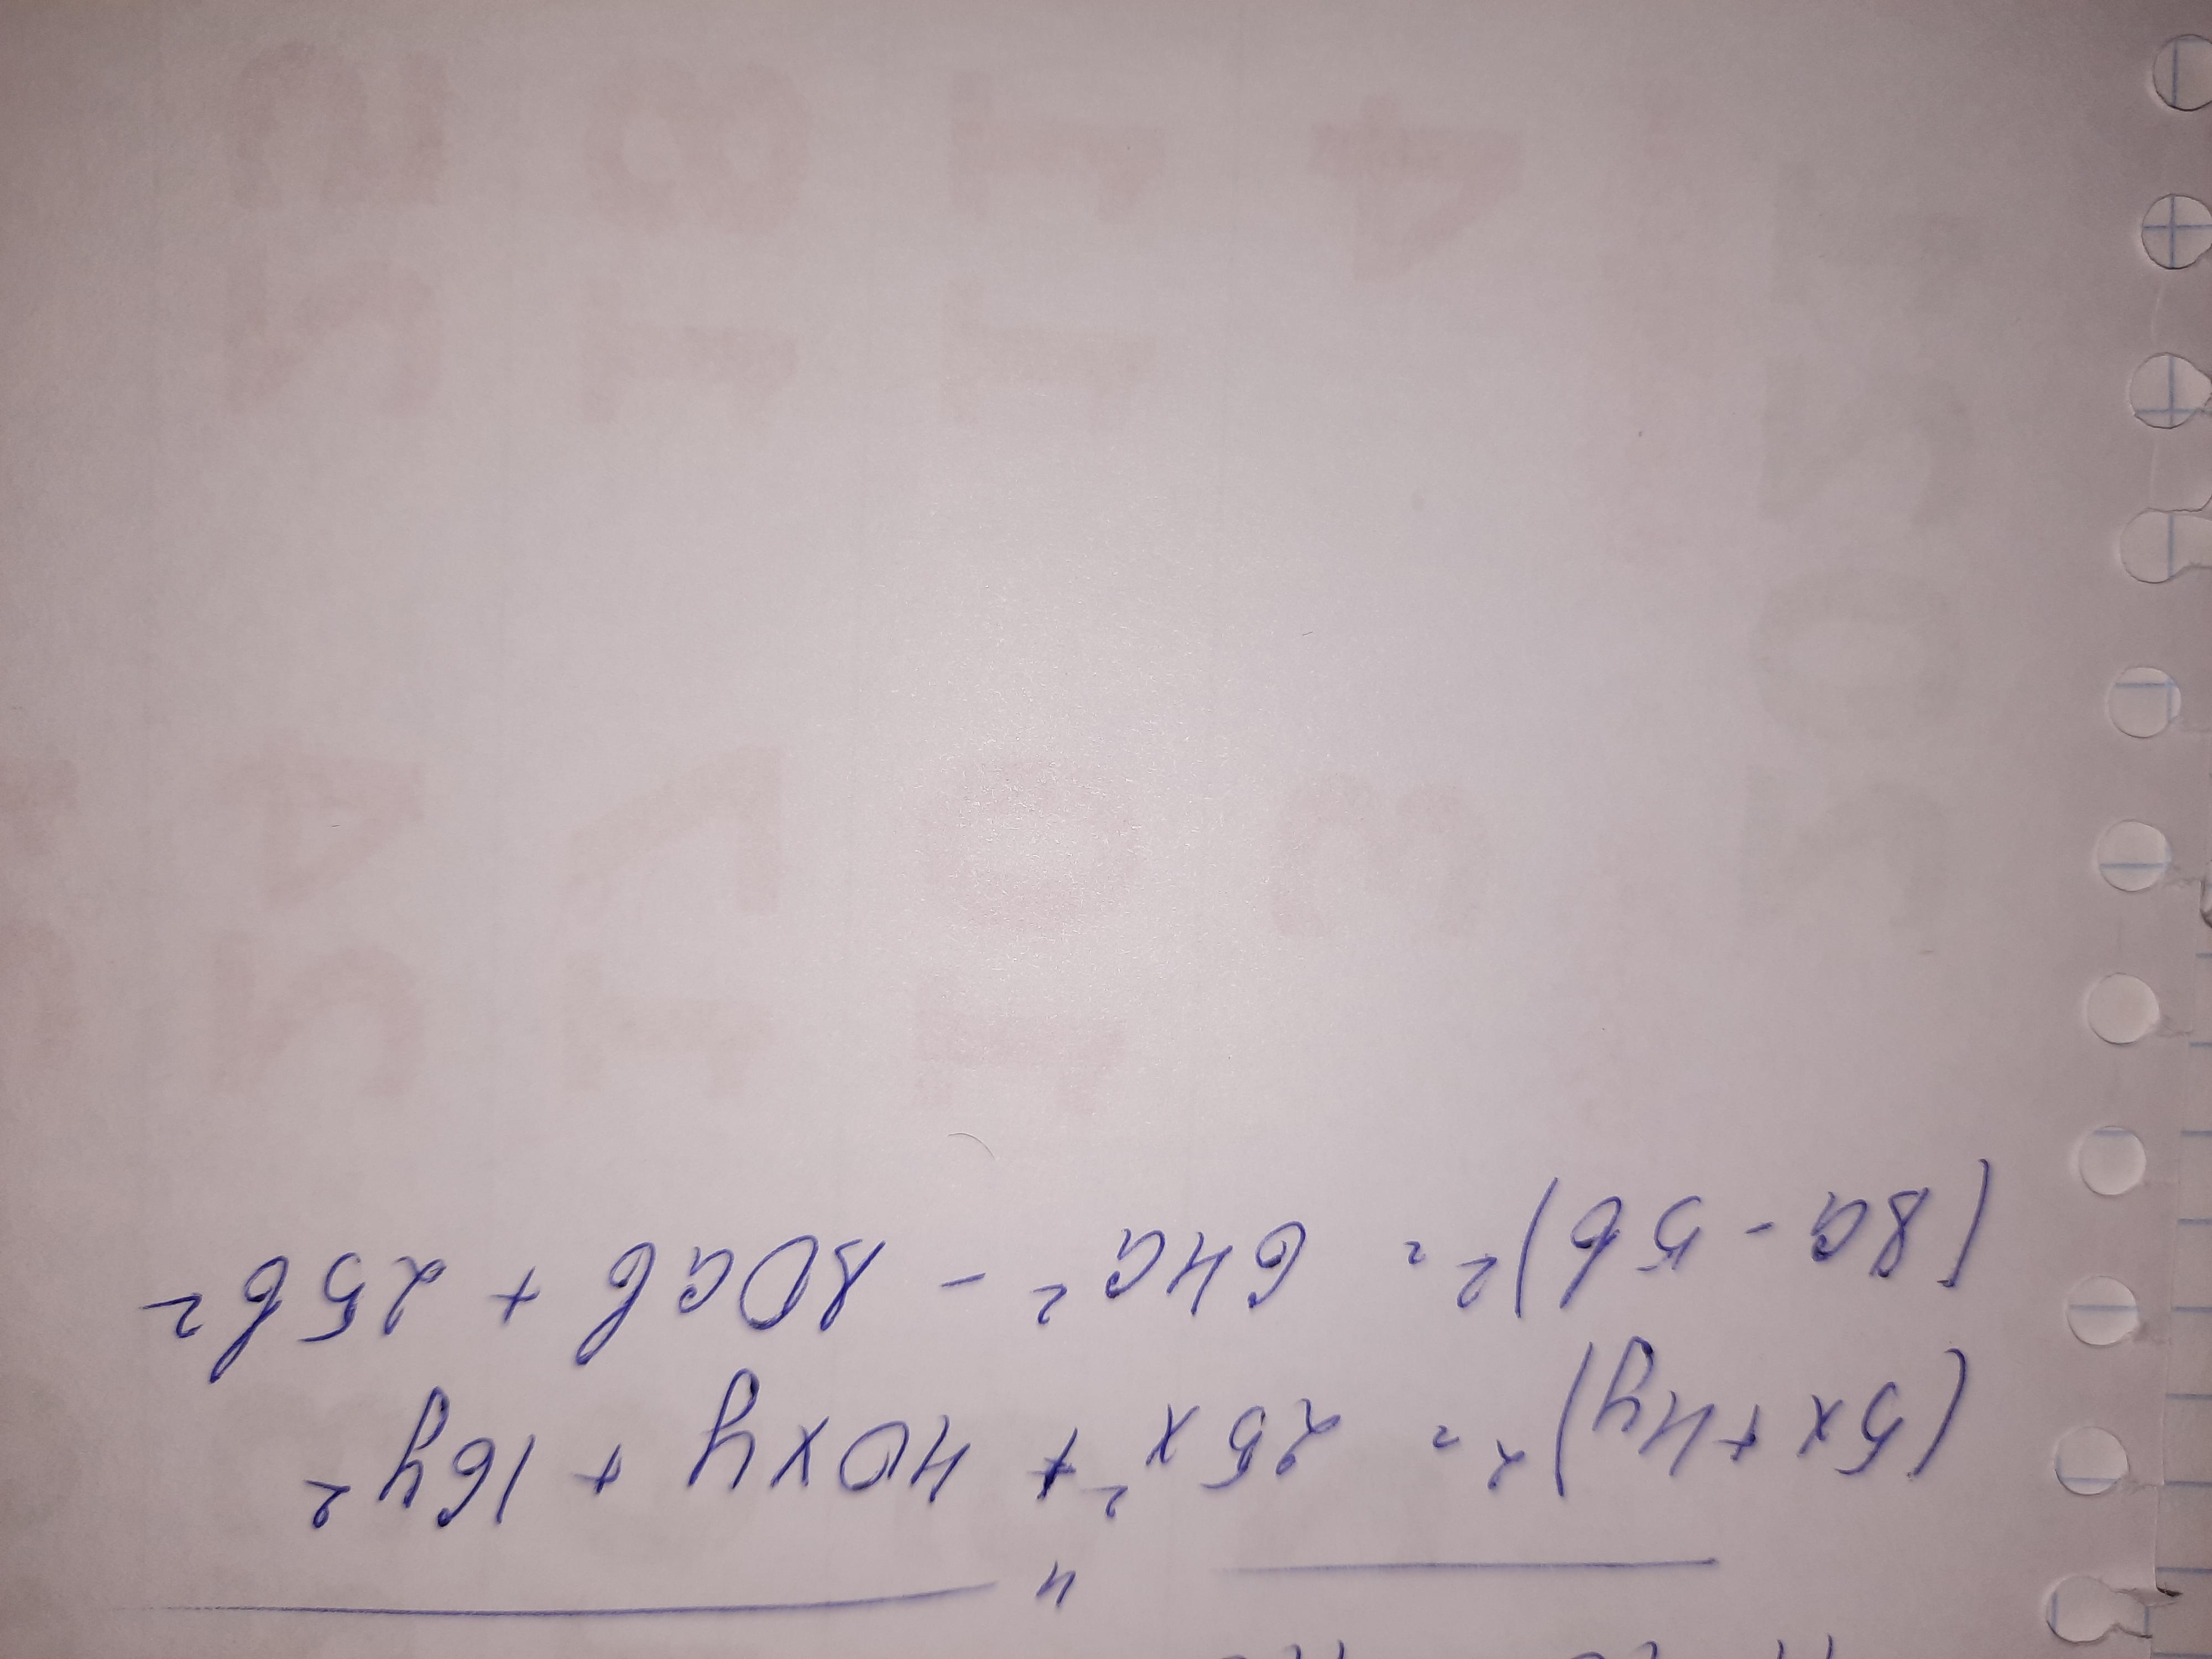 (5x+4y)² = 25x² + 40xy + 16y²
(8a - 5b)² = 64a² - 80ab + 25b²